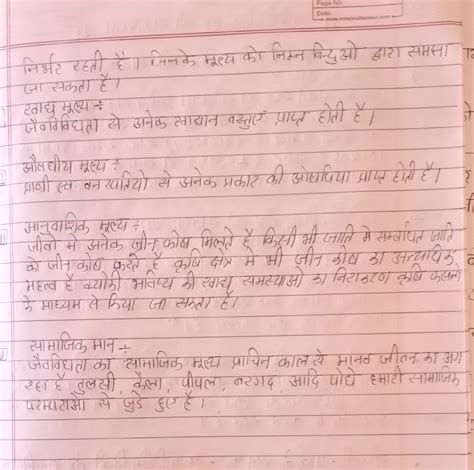 Page No.
Date
निर्भर रहती है। जिनके मूल्य को निम्न बिन्दुओ द्वारा समझा
जा सकता है।
खाद्य मूल्य ÷
जैवविविधता से अनेक खाद्यान वस्तुएँ प्राप्त होती है।
औषधीय मूल्य ÷
प्राणी एव वनस्पतियो से अनेक प्रकार की औषधिया प्राप्त होती है।
आनुवांशिक मूल्य ÷
जीवो मे अनेक जीन कोष मिलते है किसी भी जाति मे सम्बंधित जाति
को जीन कोष कहते है कृषि क्षेत्र मे भी जीन कोष का अत्यधिक
महत्व है क्योकी भविष्य की खाद्य समस्याओ का निराकरण कृषि फसलो
के माध्यम से किया जा सकता है।
सामाजिक मान ÷
जैवविधता का सामाजिक मूल्य प्राचिन काल से मानव जीवन का अंग
रहा है तुलसी, केला, पीपल, बरगद, आदि पौधे हमारी सामाजिक
परम्पराओ से जुडे हुए है।